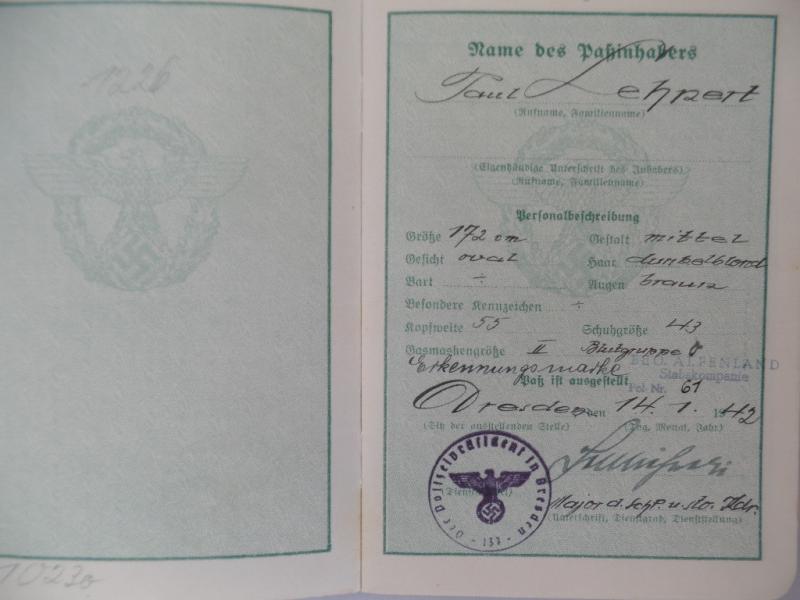 1226
1023o
Name des Paßinhabers
Paul Lehnert
(Rufname, Familienname)
(Eigenhändige Unterschrift des Inhabers)
(Rufname, Familienname)
Personalbeschreibung
Größe 172 cm Gestalt mittel
Gesicht oval Haar dunkelblond
Bart ÷ Augen braun
Besondere Kennzeichen ÷
Kopfweite 55 Schuhgröße 43
Gasmaskengröße II Blutgruppe 0
BEO. ALPENLAND
Erkennungsmarke Stabskompanie
Paß ist ausgestellt Pol. Nr. 61
Dresden den 14. 1. 1942
(Sitz der ausstellenden Stelle) (Tag, Monat, Jahr)
Der Polizeipräsident in Dresden
137
Major d. Schp. u. stv. Kdr.
(Unterschrift, Dienstgrad, Dienststellung)